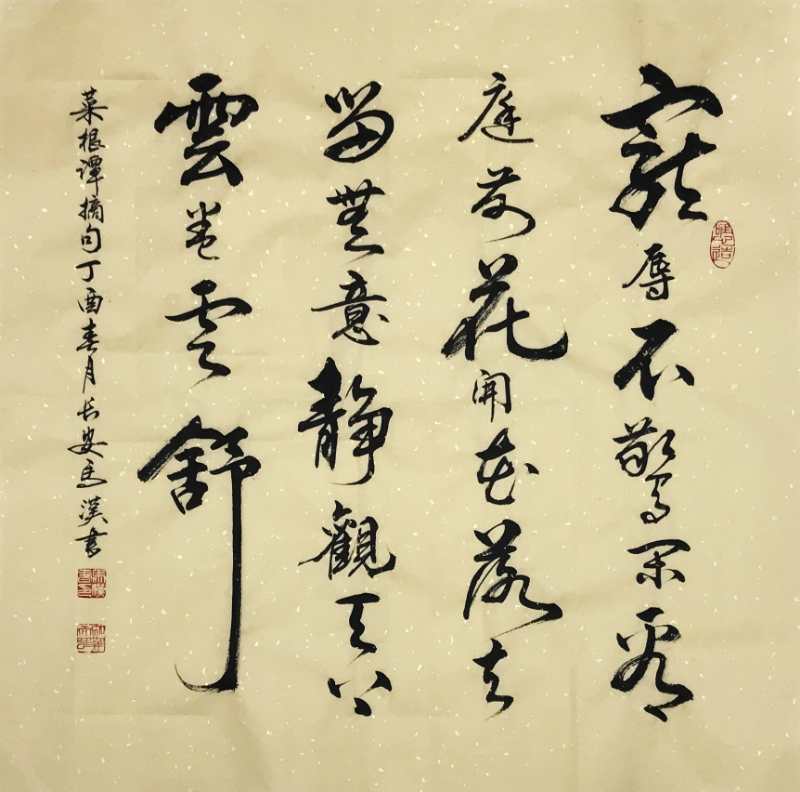 寵辱不驚閑看
庭前花開花落去
留無意靜觀天下
雲卷雲舒
菜根谭摘句丁酉春月长安馬漢書